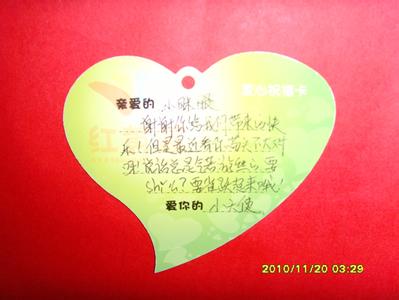 爱心祝福卡
亲爱的 小眯眼
谢谢你给我们带来的快
乐!但是最近看你苗头不太对
说话总是 要
shi么?要雀跃起来哦!
爱你的 小天使
2010/11/20 03:29